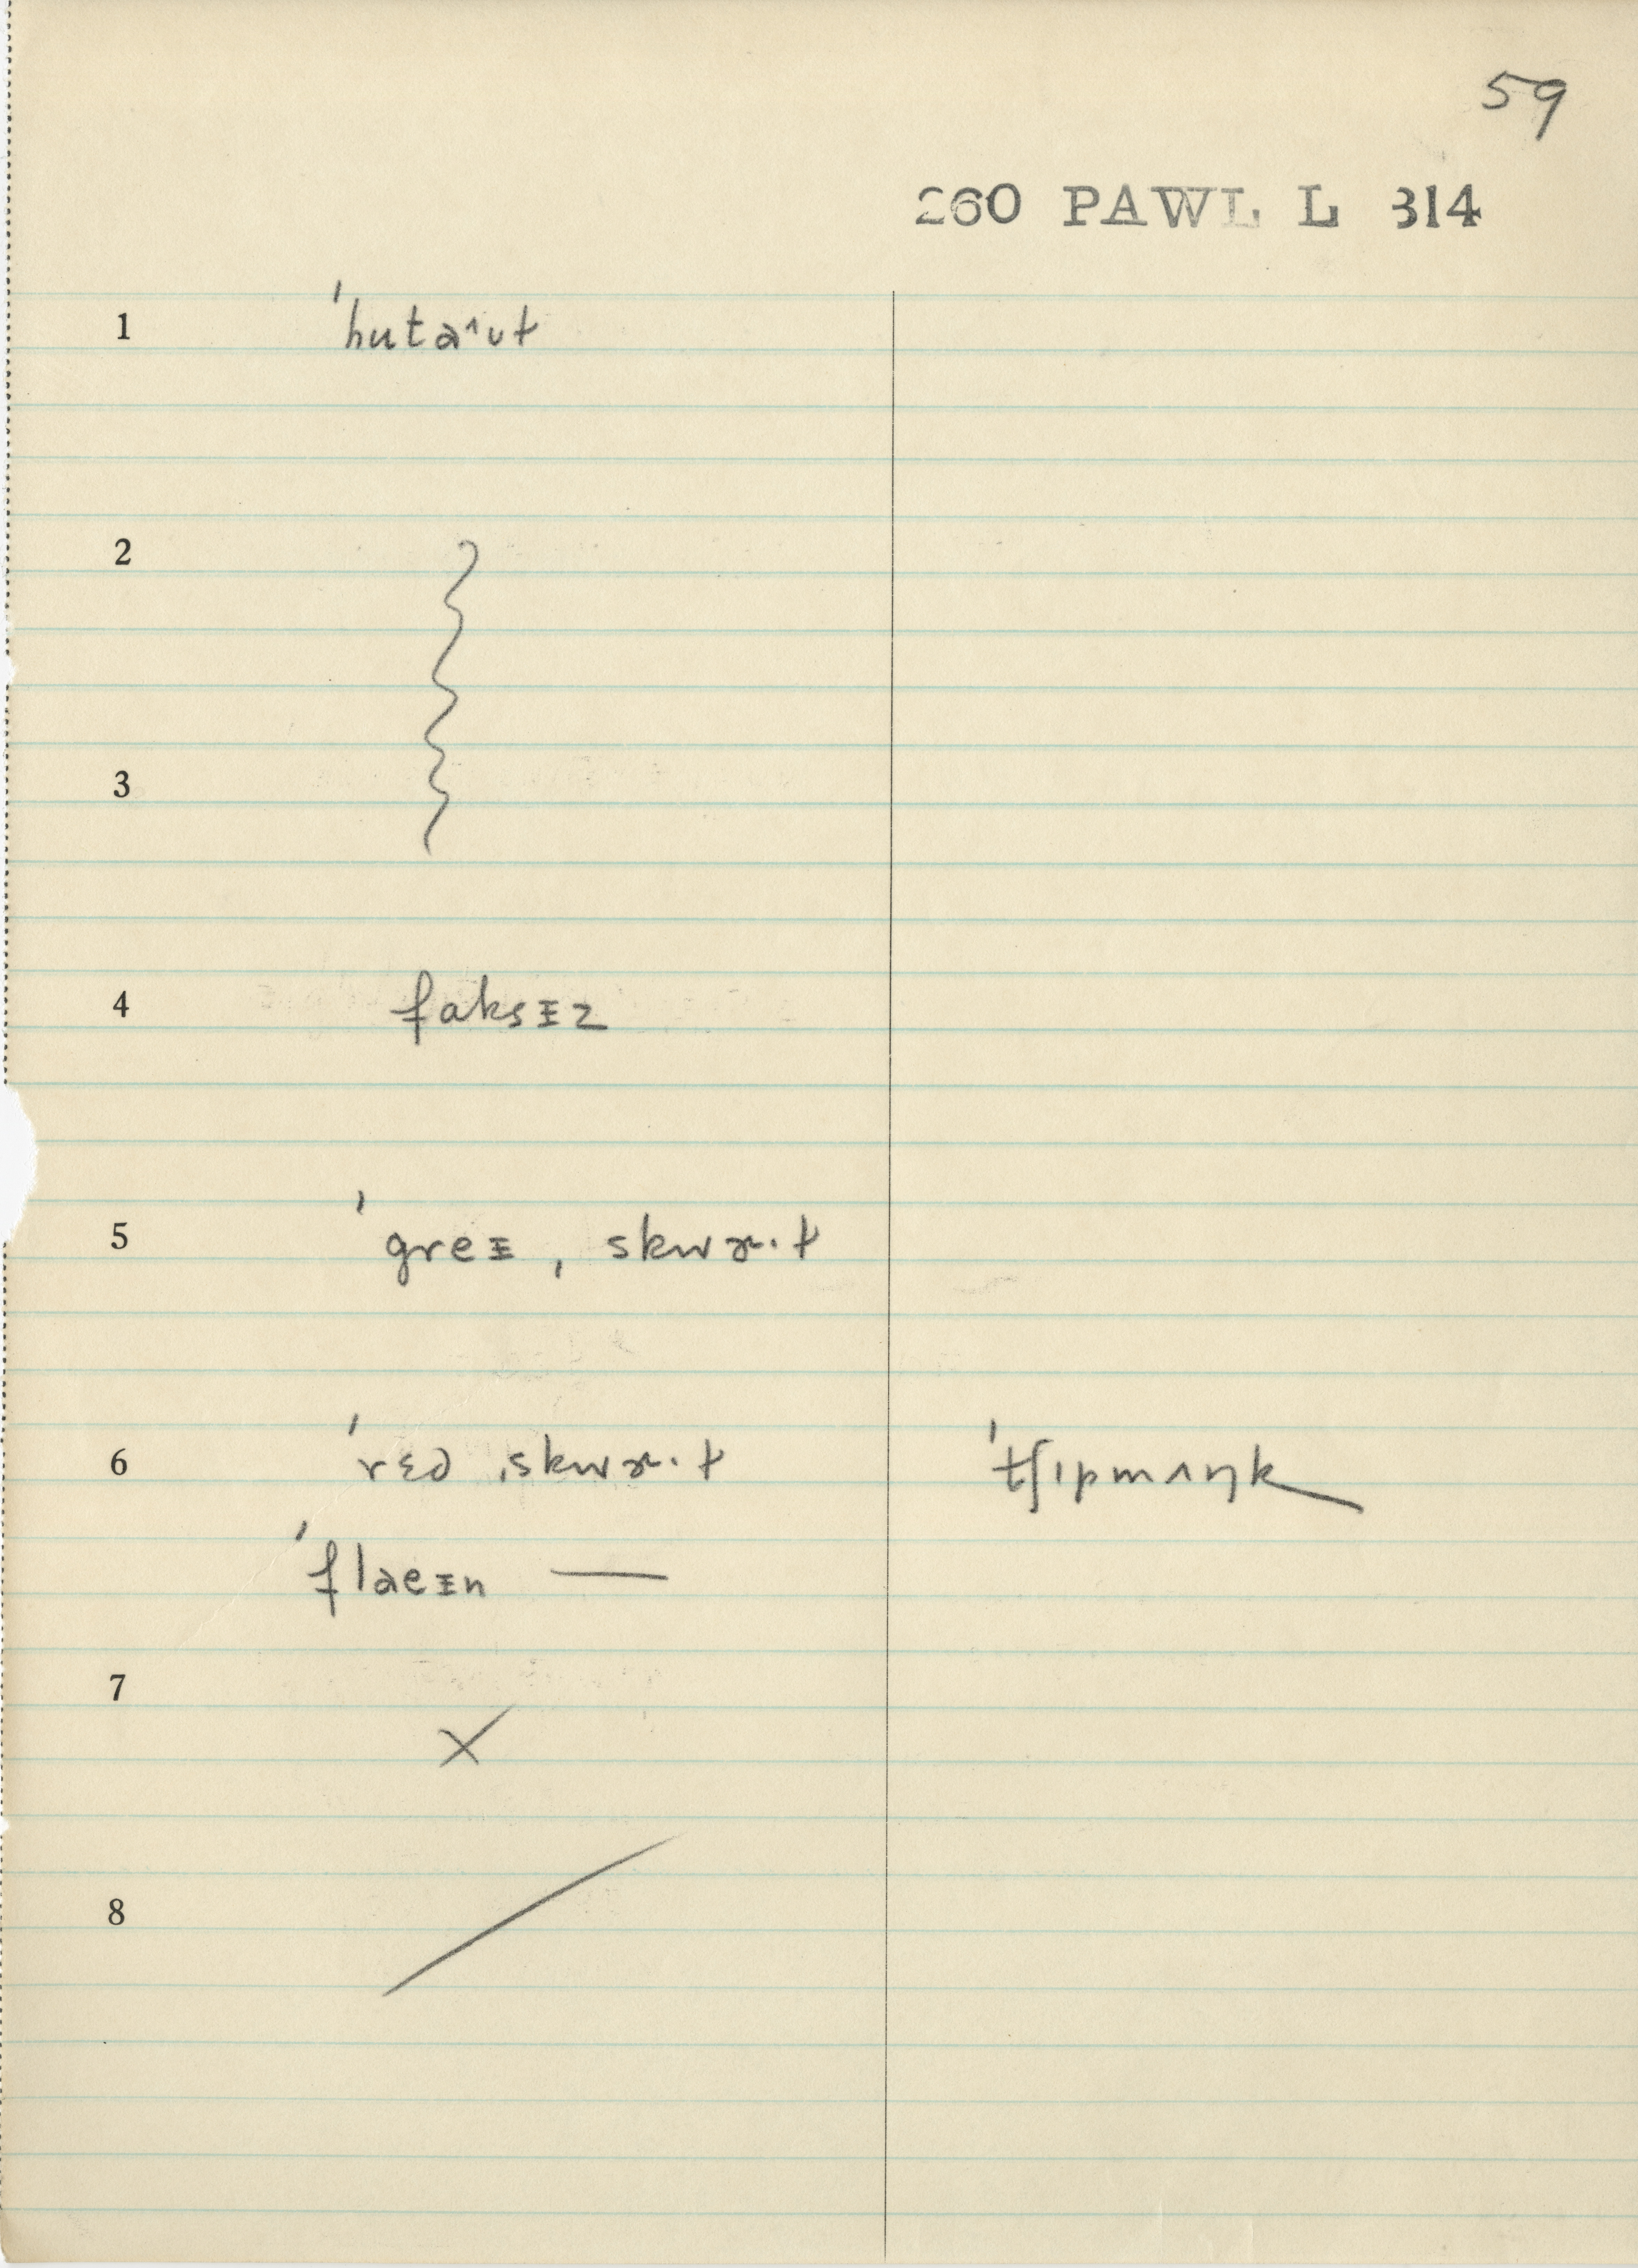 59
260 PAWL L 314
1 ˈhutaˆʊɫ
2
3
4 faksɪz
5 ˈgreɪ ˌskwɝ·ɫ
6 ˈrɛd ˌskwɝ·ɫ ˈtʃɪpmʌŋk
ˈflaeɪn —
7 X
8